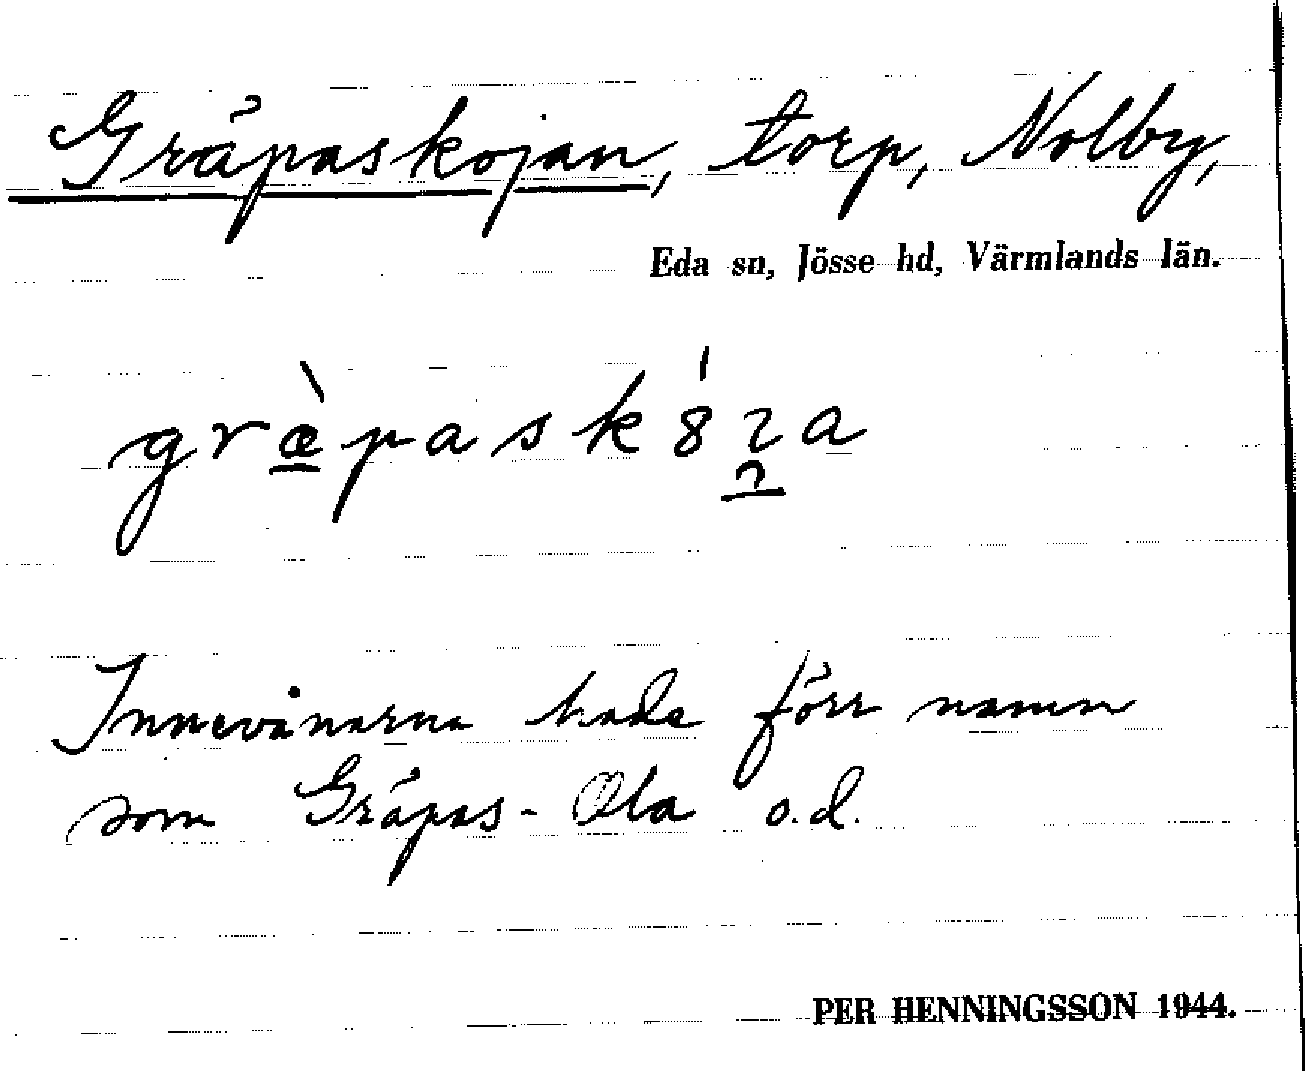 Gräpaskojan, torp, Nolby,
Eda sn, Jösse hd, Värmlands län.
græ̲̀pask8́ɿa
Innevånarna hade förr namn
som Gräpas-Ola o.d.
PER HENNINGSSON 1944.